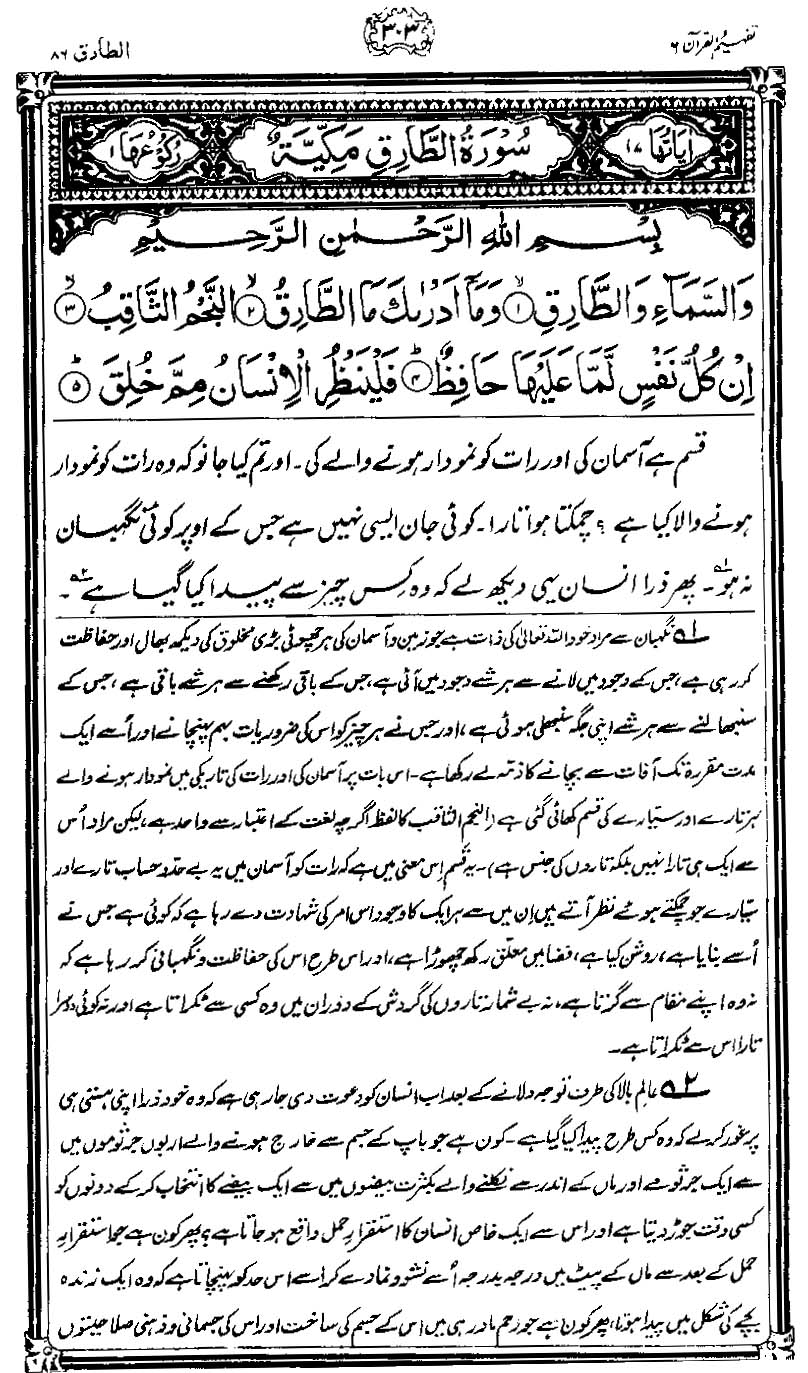 تفہیم القرآن ۶
۳۰۳
الطارق ۸۶
اٰیَاتُهَا ۱۷
سُوْرَةُ الطَّارِقِ مَكِّيَّةٌ
رُكُوْعُهَا ۱
بِسْمِ اللهِ الرَّحْمٰنِ الرَّحِيْمِ
وَالسَّمَآءِ وَالطَّارِقِ ۙ۱ وَمَآ اَدْرٰىكَ مَا الطَّارِقُ ۙ۲ النَّجْمُ الثَّاقِبُ ۙ۳
اِنْ كُلُّ نَفْسٍ لَّمَّا عَلَيْهَا حَافِظٌ ؕ۴ فَلْيَنْظُرِ الْاِنْسَانُ مِمَّ خُلِقَ ؕ۵
قسم ہے آسمان کی اور رات کو نمودار ہونے والے کی۔ اور تم کیا جانو کہ وہ رات کو نمودار
ہونے والا کیا ہے؟ چمکتا ہوا تارا۔ کوئی جان ایسی نہیں ہے جس کے اوپر کوئی نگہبان
نہ ہو۱؎۔ پھر ذرا انسان یہی دیکھ لے کہ وہ کس چیز سے پیدا کیا گیا ہے۲؎۔
۱؎ نگہبان سے مراد خود اللہ تعالیٰ کی ذات ہے جو زمین و آسمان کی ہر چھوٹی بڑی مخلوق کی دیکھ بھال اور حفاظت
کر رہی ہے، جس کے وجود میں لانے سے ہر شے وجود میں آئی ہے، جس کے باقی رکھنے سے ہر شے باقی ہے، جس کے
سنبھالنے سے ہر شے اپنی جگہ سنبھلی ہوئی ہے، اور جس نے ہر چیز کو اس کی ضروریات بہم پہنچانے اور اُسے ایک
مدت مقررہ تک آفات سے بچانے کا ذمہ لے رکھا ہے۔ اس بات پر آسمان کی اور رات کی تاریکی میں نمودار ہونے والے
ہر تارے اور سیّارے کی قسم کھائی گئی ہے (النجم الثاقب کا لفظ اگرچہ لغت کے اعتبار سے واحد ہے، لیکن مراد اُس
سے ایک ہی تارا نہیں بلکہ تاروں کی جنس ہے)۔ یہ قسم اِس معنی میں ہے کہ رات کو آسمان میں یہ بے حد و حساب تارے اور
سیّارے جو چمکتے ہوئے نظر آتے ہیں اِن میں سے ہر ایک کا وجود اس امر کی شہادت دے رہا ہے کہ کوئی ہے جس نے
اُسے بنایا ہے، روشن کیا ہے، فضا میں معلّق رکھ چھوڑا ہے، اور اس طرح اس کی حفاظت و نگہبانی کر رہا ہے کہ
نہ وہ اپنے مقام سے گرتا ہے، نہ بے شمار تاروں کی گردش کے دَوران میں وہ کسی سے ٹکراتا ہے اور نہ کوئی دوسرا
تارا اس سے ٹکراتا ہے۔
۲؎ عالمِ بالا کی طرف توجہ دلانے کے بعد اب انسان کو دعوت دی جا رہی ہے کہ وہ خود ذرا اپنی ہستی ہی
پر غور کر لے کہ وہ کس طرح پیدا کیا گیا ہے۔ کون ہے جو باپ کے جسم سے خارج ہونے والے اربوں جرثوموں میں
سے ایک جرثومے اور ماں کے اندر سے نکلنے والے بکثرت بیضوں میں سے ایک بیضے کا انتخاب کر کے دونوں کو
کسی وقت جوڑ دیتا ہے اور اس سے ایک خاص انسان کا استقرارِ حمل واقع ہو جاتا ہے؟ پھر کون ہے جو استقرارِ
حمل کے بعد سے ماں کے پیٹ میں درجہ بدرجہ اُسے نشوونما دے کر اسے اس حد کو پہنچاتا ہے کہ وہ ایک زندہ
بچے کی شکل میں پیدا ہو؟ پھر کون ہے جو رحم مادر ہی میں اس کے جسم کی ساخت اور اس کی جسمانی و ذہنی صلاحیتوں